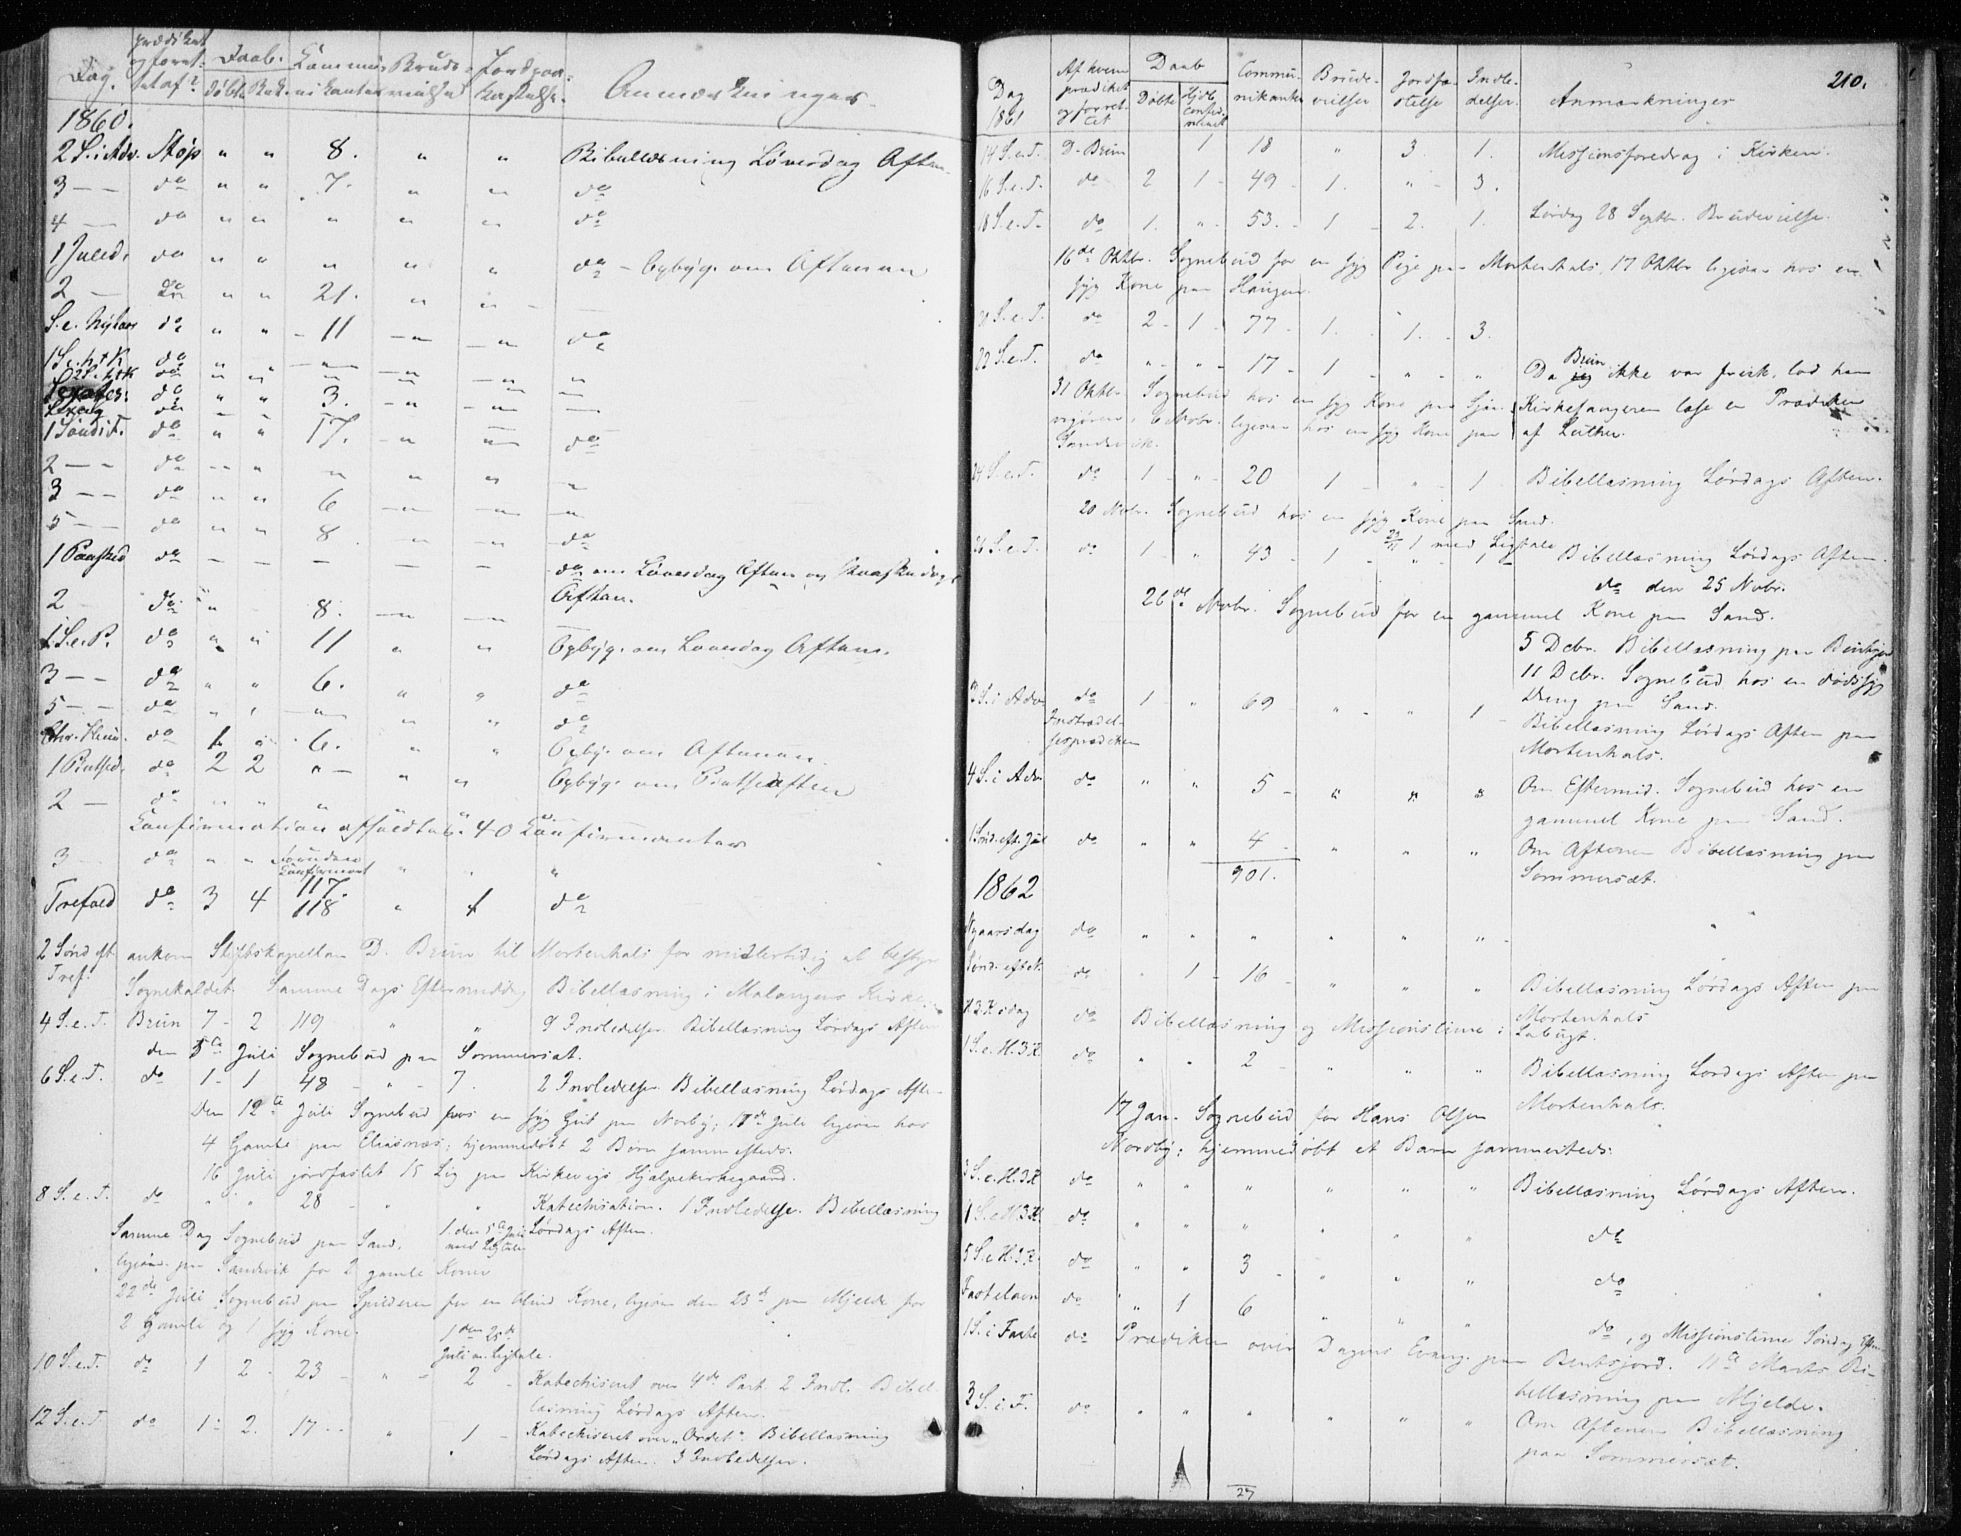 Dag. prædiket og forret- tet af? Daab. Døbte Bek. Communikanter Brude- vielser Jordpaa- kastelse. Anmærkninger.
1860.
2 S. i Adv. Stôp " " 8. " " Bibellæsning Løverdag Aften.
3 — — do " " 7. " " do
4 — do " " " " " do
1 Juled. do " " " " " do – Opbyg. om Aftenen
2 — do " " 21. " "
S. e. Nytaar do " " 11 " " do
do " " 3. " "
1 Sønd i F. do " " 17. " " do
2 — — do " " " " " "
3 — — do " " 6 " " "
5 — do " " 8. " " do
1 Paasked do — — — — — do om Løverdag Aften og Paaskedags
Aften.
2 — do " " 8. " "
1 S. e. P. do " " 11 " " Opbyg. om Løverdag Aften.
3 — — do " " 6. " " do
5 — — do " " " " " do
Chr. Himm. do 1 " 6. " " Opby. om Aftenen.
1 Pintsed. do 2 2 " " " Opbyg. om Pintseaften
2 — do " " " " "
Confirmation afholdtes. 40 Confirmanter
3 — do " " foruden Confirment 117. " " "
Trefold do 3 4 118 " 1 do
2 Sønd eft. Tref. ankom Stiftskapellan D. Brun til Mortenhals for midlertidig at bestyre
Sognekaldet. Samme Dags Eftermiddag Bibellæsning i Malangens Kirke.
4 S. e. T. Brun 7 - 2 119 " " 9 Indledelser. Bibellæsning Lørdags Aften
den 5te Juli Sognebud paa Sommersæt.
6 S. e. T. do 1 - 1 48 - " - 7. 2 Indledelser. Bibellæsning Lørdags Aften
Den 12te Juli Sognebud hos en syg Gut paa Norby; 17de Juli ligesaa hos
4 Gamle paa Eliasnæs; hjemmedøbt 2 Børn sammesteds.
16 Juli jordfæstet 15 Lig paa Kirkevigs Hjælpekirkegaard.
8 S. e. T. do " " 28 - " " Katechisation. 1 Indledelse. Bibellæsning
Lørdags Aften.
Samme Dag Sognebud paa Sand, 1. den 5te Juli med Ligtale
ligesaa paa Sandvik for 2 gamle Koner
22de Juli Sognebud paa Spilderen for en blind Kone, ligesaa den 23de paa Mjelde for
2 Gamle og 1 syg Kone. 1 den 25de Juli m. Ligtale.
10 S. e. T. do 1 2 - 23 - " - 2 - Katechiseret over 4de Part. 2 Indl. Bibel-
læsning Lørdags Aften.
12 S. e. T. do 1 - 2. 17 - - " 1 - Katechiseret over "Ordet". Bibellæsning
Lørdags Aften. 3 Indledelser.
210.
Dag 1861 Af hvem prædiket og forret- tet Daab Døbte Hjdb. confir- meret Commu- nikanter Brude- vielser Jordfæ- stelse Indle- delser. Anmærkninger
14 S. e. T. D. Brun 1 18 " 3. 1. Missionsforedrag i Kirken.
16 S. e. T. do 2 1 - 49 - 1. " - 3.
18 S. e. T. do 1. " - 53. - 1 - 2. 1. Lørdag 28 Septbr. Brudevielse.
16de Oktbr. Sognebud for en syg Pige paa Mortenhals, 17 Oktbr ligesaa hos en
syg Kone paa Haugen.
20 S. e. T. do 2 - 1 - 77 - 1. - 1. - 3.
22 S. e. T. do " - " - 17 - 1 - " - " Da Brun ikke var frisk, lod han
Kirkesangeren læse en Prædiken
af Luther.
31 Oktbr. Sognebud hos en syg Kone paa
6 Novbr. ligesaa hos en syg Kone paa
Sandvik.
24 S. e. T. do 1 - " - 20 1 - " - 1 - Bibellæsning Lørdags Aften.
20 Novbr. Sognebud hos en syg Kone paa Sand.
26 S. e. T. do 1 - " 43 - 1 - 1 med Ligtale " 1 Bibellæsning Lørdags Aften.
do den 25 Nobr.
26de Novbr. Sognebud for en gammel Kone paa Sand.
5 Dcbr. Bibellæsning paa
11 Dcbr. Sognebud hos en dødssyg
Dreng paa Sand.
3 S. i Adv. do 1 - " 69 - " - " 1 - Bibellæsning Lørdags Aften paa
Mortenhals.
Indtrædel- sesprædiken
4 S. i Adv. do " " 5 - " " " Om Eftermid. Sognebud hos en
gammel Kone paa Sand.
1 Sønd. eft. Jul do " " 4 - " " " Om Aftenen Bibellæsning paa
Sommersæt.
901.
1862
Nyaarsdag do " " " " " " "
Sønd. eft. N. do " 1 - 16 - " " " Bibellæsning Lørdags Aften paa
Mortenhals
H. 3. K.s dag do Bibellæsning og Missionstime i Løbugt.
1 S. e. H. 3 K. do " " 2 - " " " Bibellæsning Lørdags Aften paa
Mortenhals.
17 Jan. Sognebud for Hans Olsen
Nordby; hjemmedøbt et Barn sammesteds.
3 S. e. H. 3 K do " " " " " " Bibellæsning Lørdags Aften.
S. e. H. 3 K. do " " " " " " do
5 S. e. H. 3 K. do " " 3 - " " " do
Fastelavn do " 1 6 " " "
1 S. i Faste do Prædiken over Dagens Evang. paa Bentsjord. do, og Missionstime Søndag Eftm.
11te Marts Bi-
bellæsning paa Mjelde.
3 S. i F. do " " " " " " Om Aftenen Bibellæsning
paa Sommersæt.
27